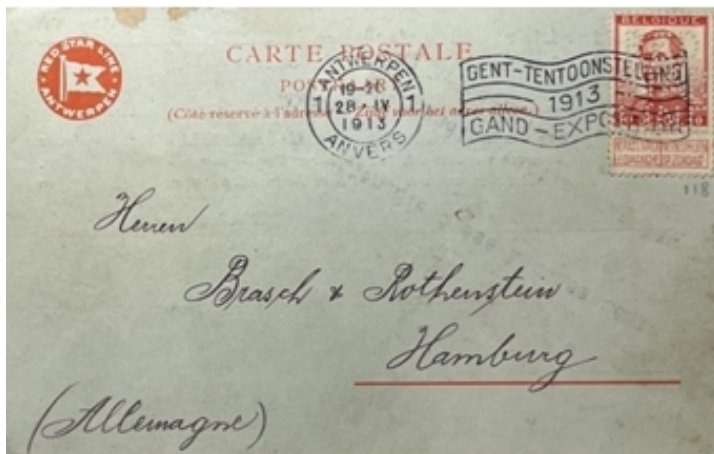 RED STAR LINE
ANTWERPEN
CARTE POSTALE
(Côté réservé à l'adresse
ANTWERPEN
1 1
28-IV
1913
ANVERS
GENT-TENTOONSTELLING
1913
GAND-EXPOSITION
BELGIQUE
118
Herren
Brasch & Rothenstein
Hamburg
(Allemagne)